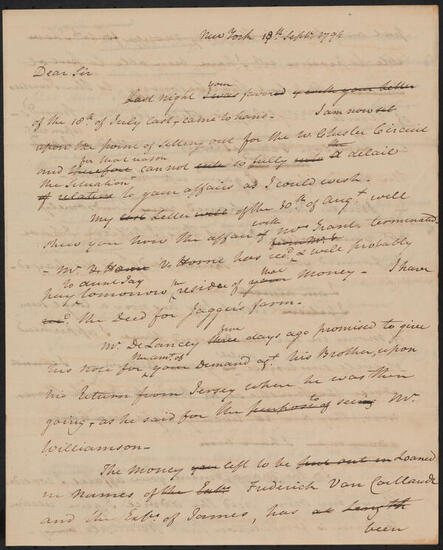 New York 13th Sept. 1794
Dear Sir
Last night I was favored with your letter
your
of the 18th of July last, came to hand. I am now set
upon the point of setting out for the W. Chester Circuit
for that reason the
and therefore cannot to fully detail
the Situation
of relative to your affairs as I could wish.
My last Letter of the 30th of Augt. will
with
shew you how the affair of Mrs. Grant terminated
- Mr. V. Horne has & will probably
to Aunt Jay
pay tomorrow residue of your Money. I have
the Deed for Jaggers farm.
Mr. DeLancey three days ago promised to give
the amt. of
his Note for your Demand agt. his Brother, upon
his Return from Jersey where he was then
going, as he said for the purpose of seeing Mr.
Williamson.
The Money you left to be put out in Loaned
in names of the Exrs. Frederick Van Cortlandt
and the Exrs. of James, has at length
been